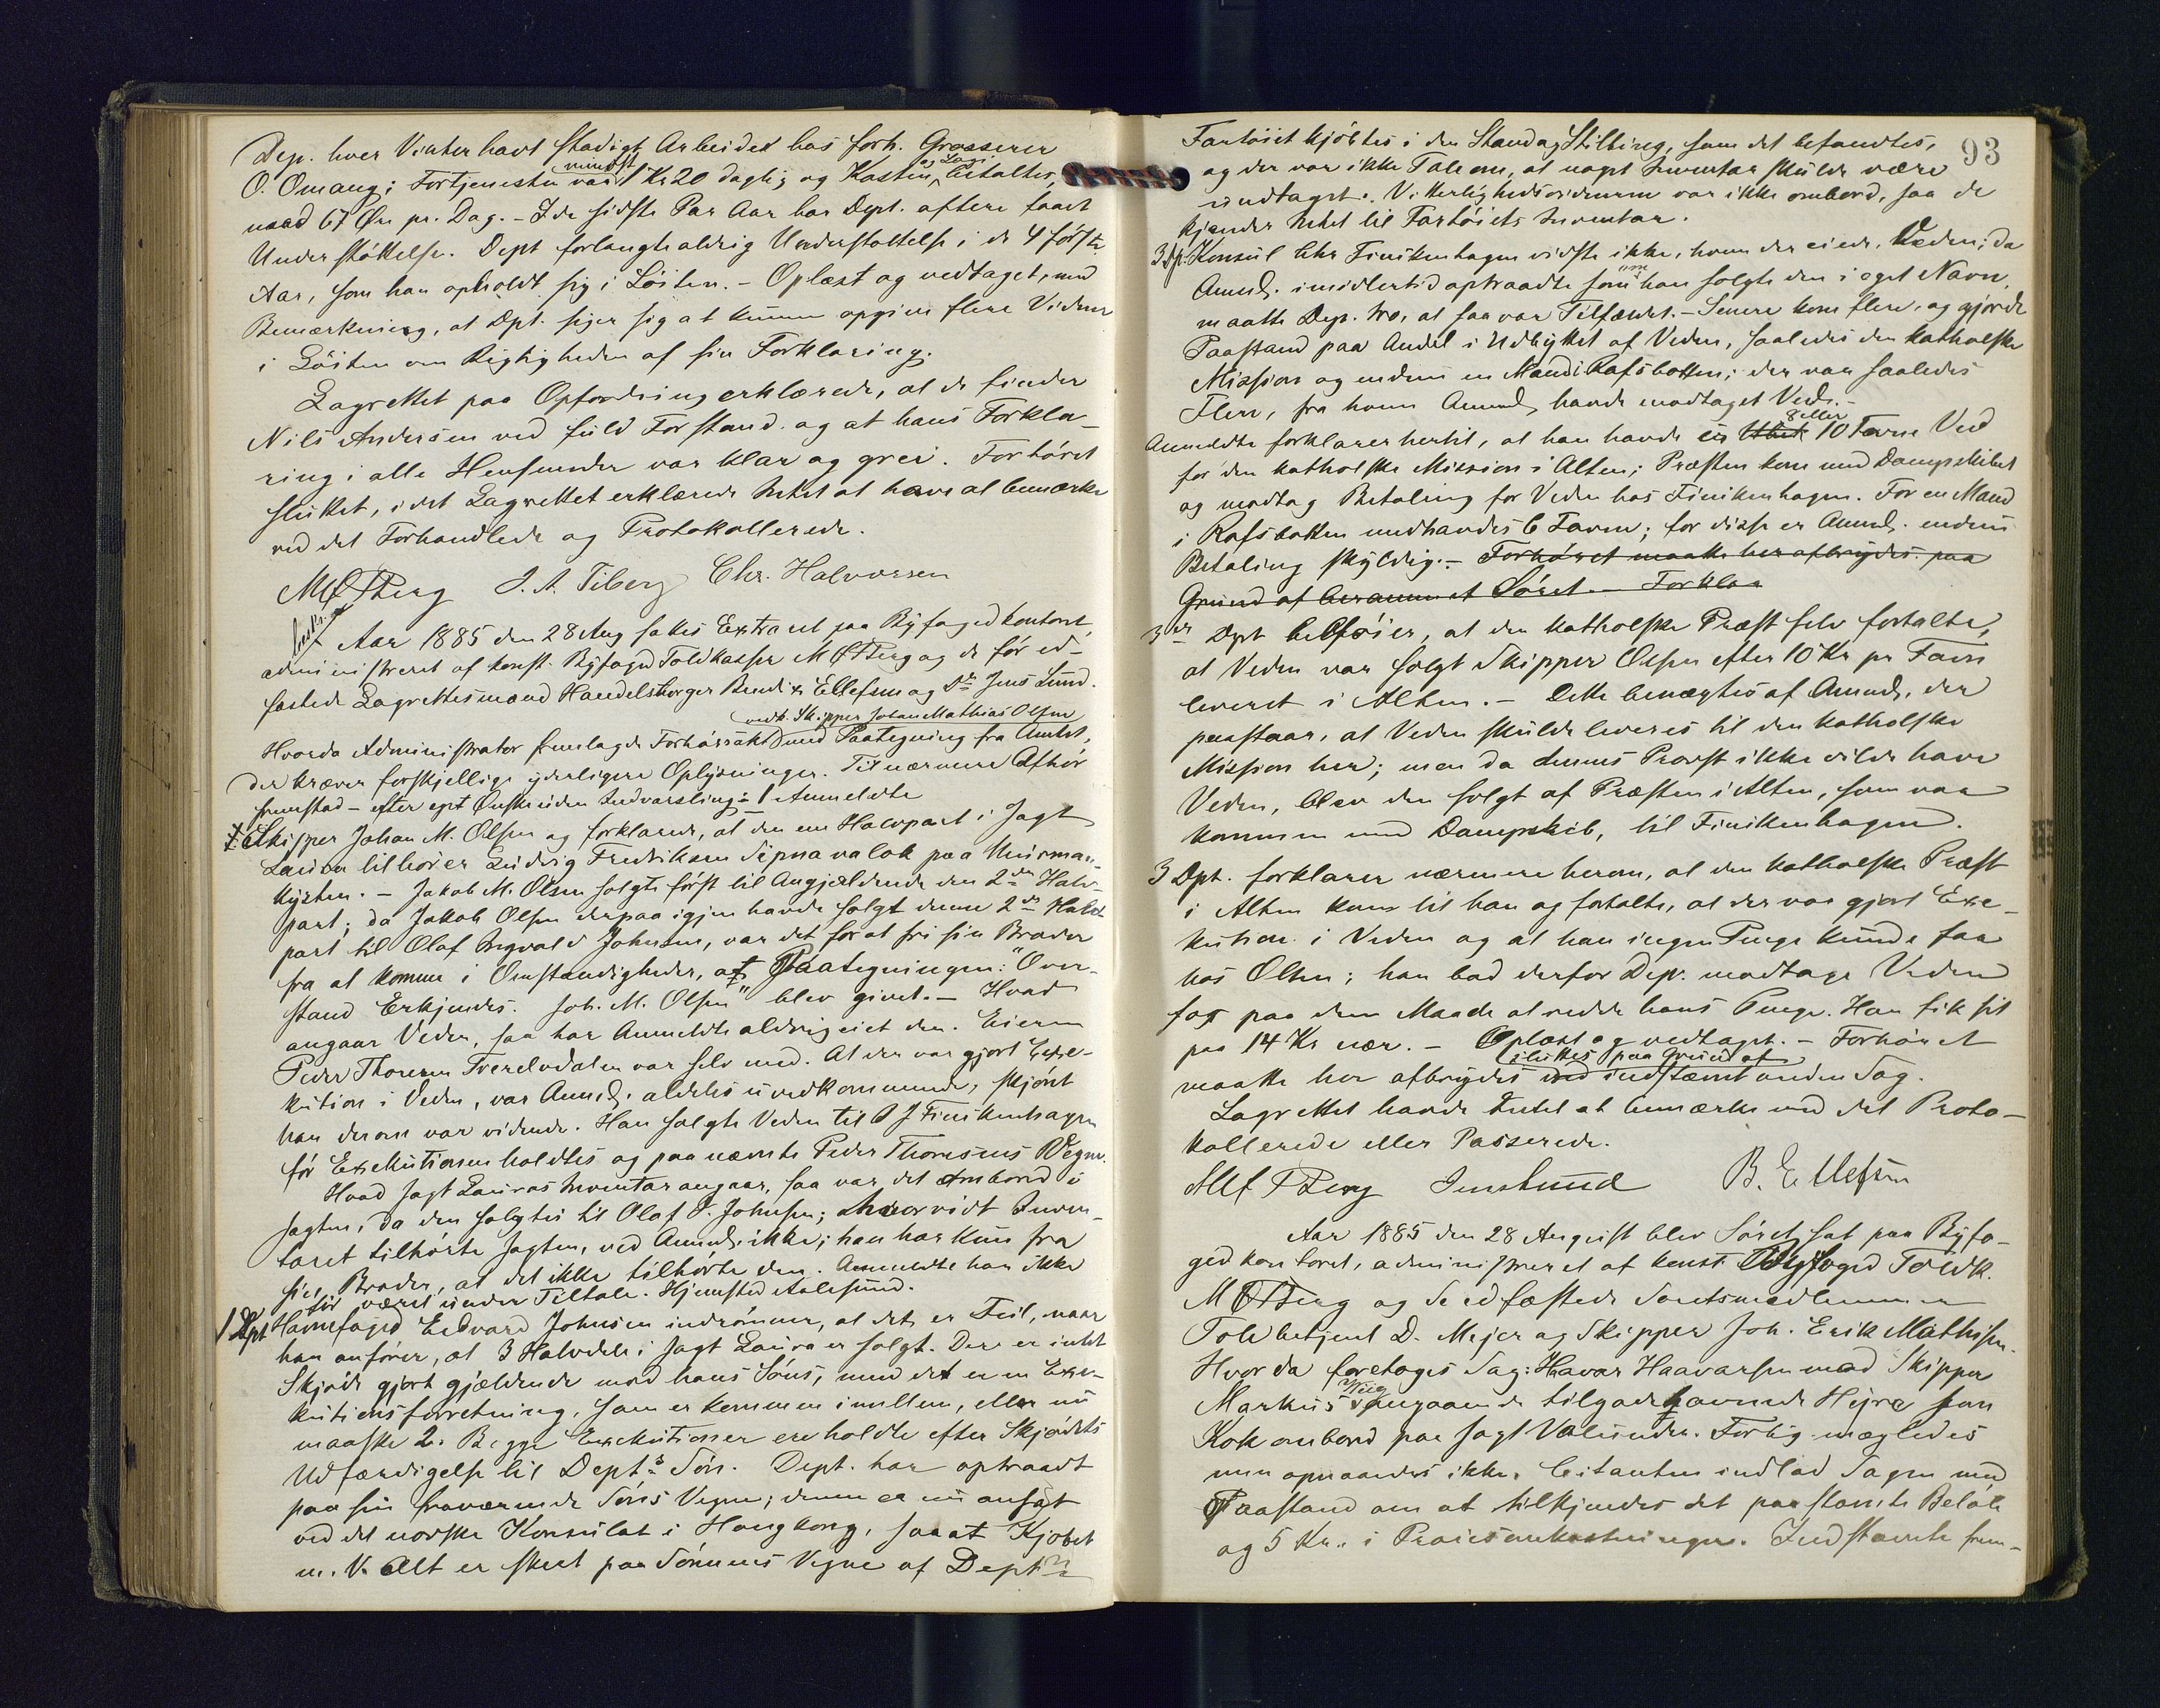 Dep. hver Vinter havt stadigt Arbeidet hos forh. Grosserer
O. Omang; Fortjenesten var mindst 1 Kr 20 daglig og Kosten og Logi betaltes
med 67 Øre pr. Dag. – I de sidste Par Aar har Dept. oftere faaet
Understøttelse. Dept forlangte aldrig Understøttelse i de 4 første
Aar, som han opholdt sig i Løiten. – Oplæst og vedtaget, med
Bemærkning, at Dpt. siger sig at kunne opgive flere Vidner
i Løiten om Rigtigheden af sin Forklaring.
Lagrettet paa Opfordring erklærede, at de finder
Nils Andersen ved fuld Forstand og at hans Forkla-
ring i alle Henseender var klar og grei. Forhøret
sluttet, idet Lagrettet erklærede Intet at have at bemærke
ved det Forhandlede og Protokollerede.
M Ø Berg J. A. Tiberg Chr. Halvorsen
Aar 1885 den 28 Aug sattes Extraret paa Byfogedkontoret,
administreret af konst. Byfoged Toldkasser M Ø Berg og de før ed-
fæstede Lagrettesmænd Handelsborger Bendix Ellefsen og Dr Jens Lund.
Hvorda Administrator fremlagde Forhørsakt vedk. Skipper Johan Mathias Olsen med Paategning fra Amtet,
der kræver forskjellige yderligere Oplysninger. Til nærmere Afhør
fremstod – efter eget Ønske uden Indvarsling – 1 Anmeldte
Skipper Johan M. Olsen og forklarede, at den ene Halvpart i Jagt
Laura tilhører Ludvig Fredriksen Sipnavalok paa Murman-
kysten. – Jakob M. Olsen solgte først til Angjældende den 2den Halv-
part; da Jakob Olsen derpaa igjen havde solgt denne 2den Halv-
part til Olaf Ingvald Johnsen, var det for at fri sin Broder
fra at komme i Omstændigheder, at Paategningen: "Over-
stand Erkjendes. Joh. M. Olsen" blev givet. – Hvad
angaar Veden, saa har Anmeldte aldrig eiet den. Eieren
Peder Thoresen Tverelvdalen var selv med. At der var gjort Exe-
kution i Veden, var Anmeld. aldeles uvedkommende, skjønt
han derom var vidende. Han solgte Veden til C J Finckenhagen
før Exekutionen holdtes og paa nævnte Peder Thoresens Vegne.
Hvad Jagt Lauras Inventar angaar, saa var det ombord i
Jagten, da den solgtes til Olaf I. Johnsen; hvorvidt Inven-
taret tilhørte Jagten, ved Anmeld. ikke; han har kun fra
sin Broder, at det ikke tilhørte den. Anmeldte har ikke
før været under Tiltale. Hjemsted Aalesund.
1 Dpt Havnefoged Edvard Johnsen indrømmer, at det er Feil, naar
han anfører, at 3 Halvdele i Jagt Laura er solgt. Der er intet
Skjøde gjort gjældende mod hans Søns, men det er en Exe-
kutionsforretning, som er kommen imellem, eller nu
maaske 2. Begge Exekutioner ere holdte efter Skjødets
Udfærdigelse til Depts Søn. Dept. har optraadt
paa sin fraværende Søns Vegne; denne er nu ansat
ved det norske Konsulat i Hongkong, saa at Kjøbet
m. V. Alt er skeet paa Sønnens Vegne af Deptn
93
Fartøiet kjøbtes i den Stand og Stilling, som det befandtes,
og der var ikke Tale om, at noget Inventar skulde være
undtaget. Vitterlighedsvidnerne var ikke ombord, saa de
kjender Intet til Fartøiets Inventar.
3 Dp. Konsul Chr Finckenhagen vidste ikke, hvem der eiede Veden; da
Anmeld. imidlertid optraadte som om han solgte den i eget Navn,
maatte Dep. tro, at saa var Tilfældet. – Senere kom flere, og gjorde
Paastand paa Andel i Udbyttet af Veden, saaledes den katholske
Mission og endnu en Mand i Rafsbotten; der var saaledes
Flere, fra hvem Anmeld. havde modtaget Ved. –
Anmeldte forklarer hertil, at han havde 8 eller 10 Favne Ved
for den katholske Mission i Alten; Præsten kom med Dampskibet
og modtog Betaling for Veden hos Finckenhagen. For en Mand
i Rafsbotten medhavdes 6 Favne; for disse er Anmeld. endnu
Betaling skyldig. – Forhøret maatte her afbrydes paa
Grund af berammet Søret – Forklar
3de Dpt tilføier, at den katholske Præst selv fortalte,
at Veden var solgt Skipper Olsen efter 10 Kr pr Favn
leveret i Alten. – Dette benægtes af Anmeld., der
paastaar, at Veden skulde leveres til den katholske
Mission her; men da dennes Provst ikke vilde have
Veden, blev den solgt af Præsten i Alten, som var
kommen med Dampskib, til Finckenhagen.
3 Dpt. forklarer nærmere herom, at den katholske Præst
i Alten kom til han og fortalte, at der var gjort Exe-
kution i Veden og at han ingen Penge kunde faa
hos Olsen; han bad derfor Dep. modtage Veden
for paa den Maade at redde hans Penge. Han fik sit
paa 14 Kr nær. – Oplæst og vedtaget. – Forhøret
maatte her afbrydes sluttes paa Grund af ved indstævnt anden Sag.
Lagrettet havde Intet at bemærke ved det Proto-
kollerede eller Passerede.
M Ø Berg Jens Lund B. Ellefsen
Aar 1885 den 28 August blev Søret sat paa Byfo-
gedkontoret, administreret af konst. Byfoged Toldk.
M Ø Berg og de edfæstede Søretsmedlemmer
Toldbetjent D. Mejer og Skipper Joh. Erik Mathisen.
Hvorda foretoges Sag: Havar Haavarsen mod Skipper
Markus Wiig angaaende tilgodehavende Hyre som
Kok ombord paa Jagt Valunder. Forlig mægledes
men opnaaedes ikke. Citanten indlod Sagen med
Paastand om at tilkjendes det paastævnte Beløb
og 5 Kr. i Procesomkostninger. Indstævnte frem-